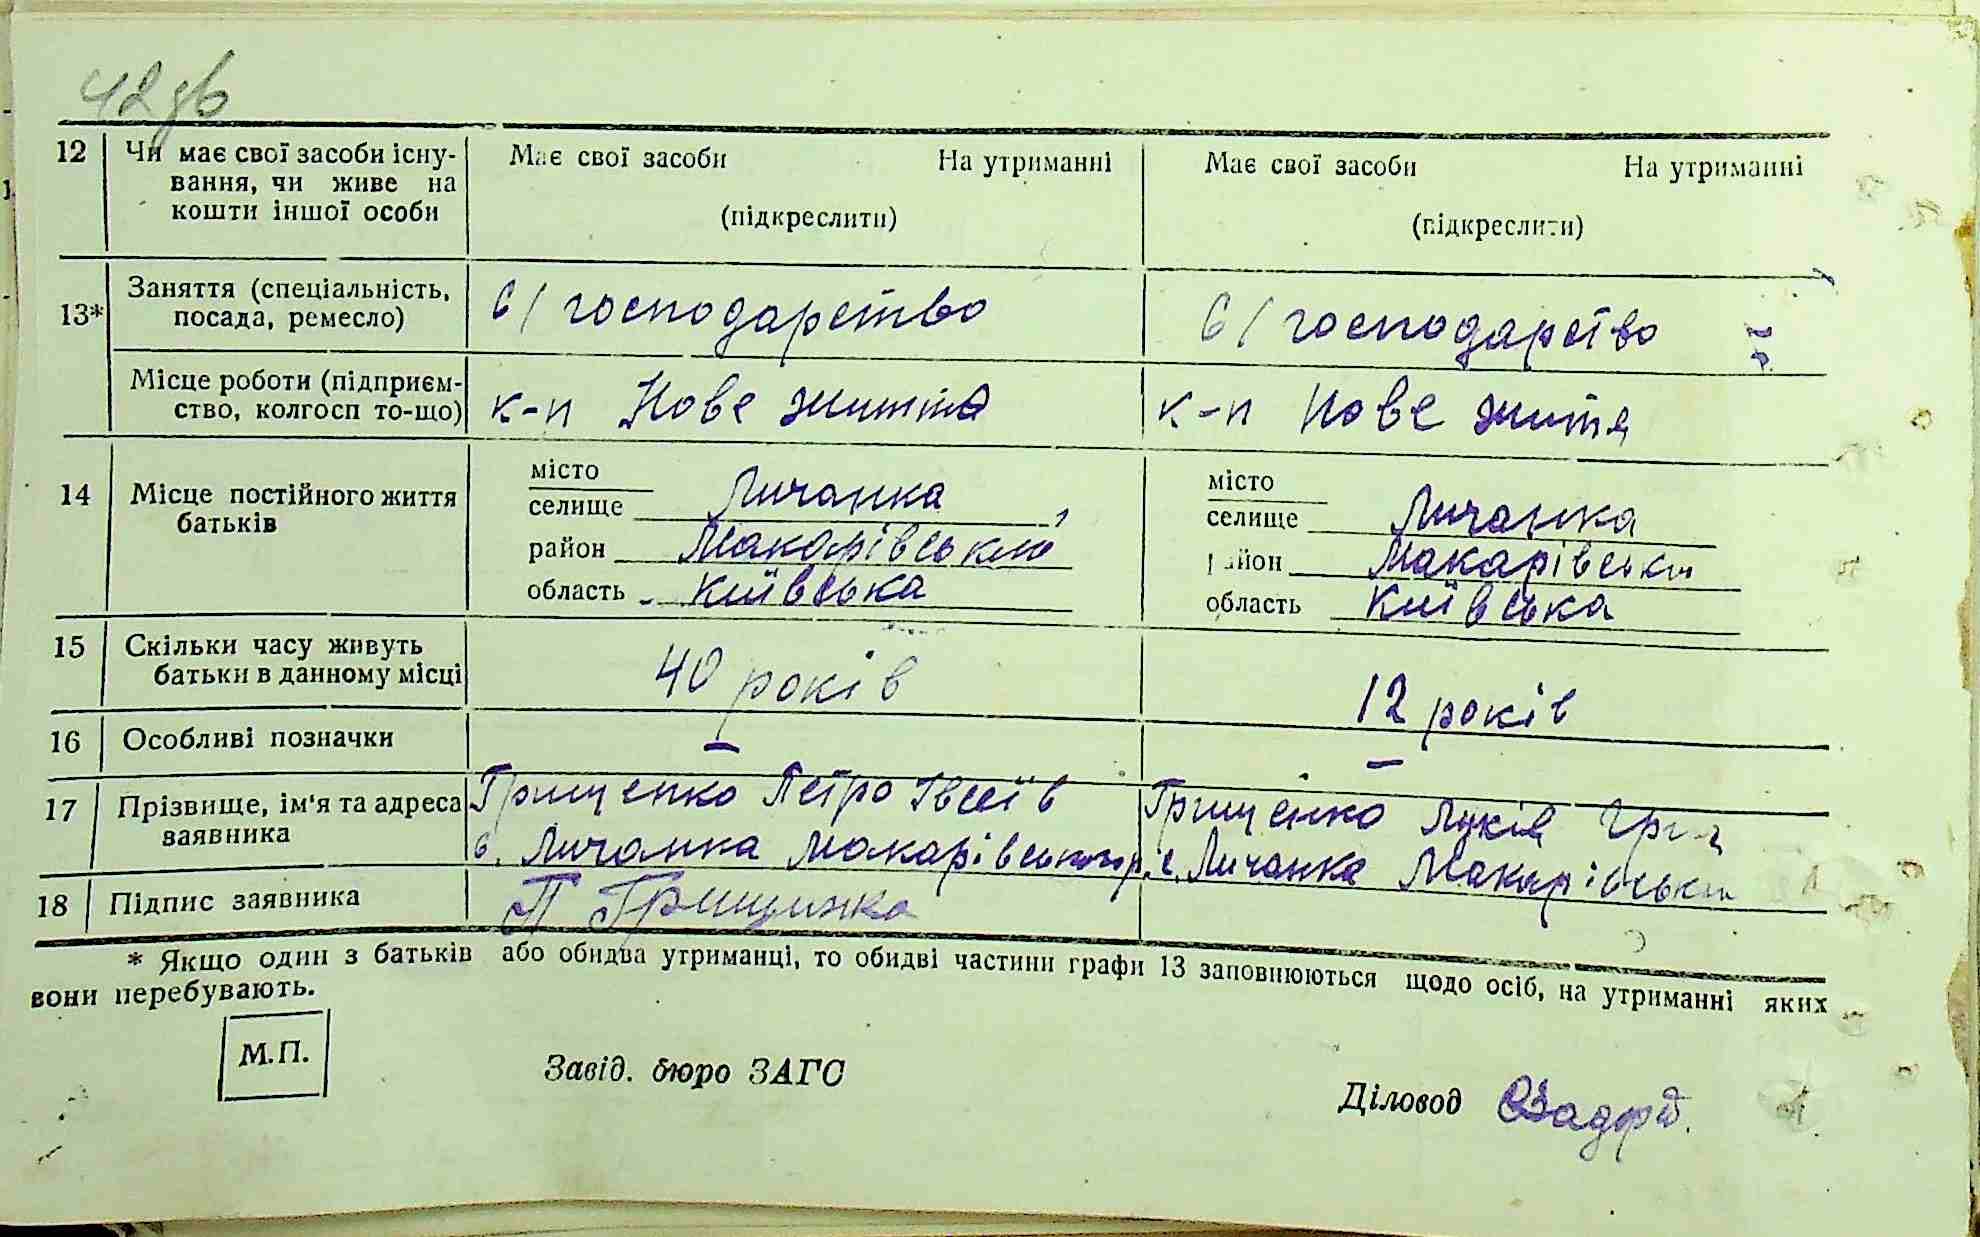 42 зв
12 Чи має свої засоби існу- Має свої засоби На утриманні Має свої засоби На утриманні
вання, чи живе на
кошти іншої особи (підкреслити) (підкреслити)
13* Заняття (спеціальність, с/господарство с/господарство
посада, ремесло)
Місце роботи (підприєм- к-п Нове життя к-п Нове життя
ство, колгосп то-що)
14 Місце постійного життя місто місто
батьків селище Личанка селище Личанка
район Макарівський район Макарівськ
область Київська область Київська
15 Скільки часу живуть 40 років 12 років
батьки в данному місці
16 Особливі позначки — —
17 Прізвище, ім'я та адреса Грищенко Петро Грищенко
заявника с. Личанка Макарівського р. с. Личанка Макарівськ
18 Підпис заявника П Грищинко
* Якщо один з батьків або обидва утриманці, то обидві частини графи 13 заповнюються щодо осіб, на утриманні яких
вони перебувають.
М.П.
Завід. бюро ЗАГС
Діловод